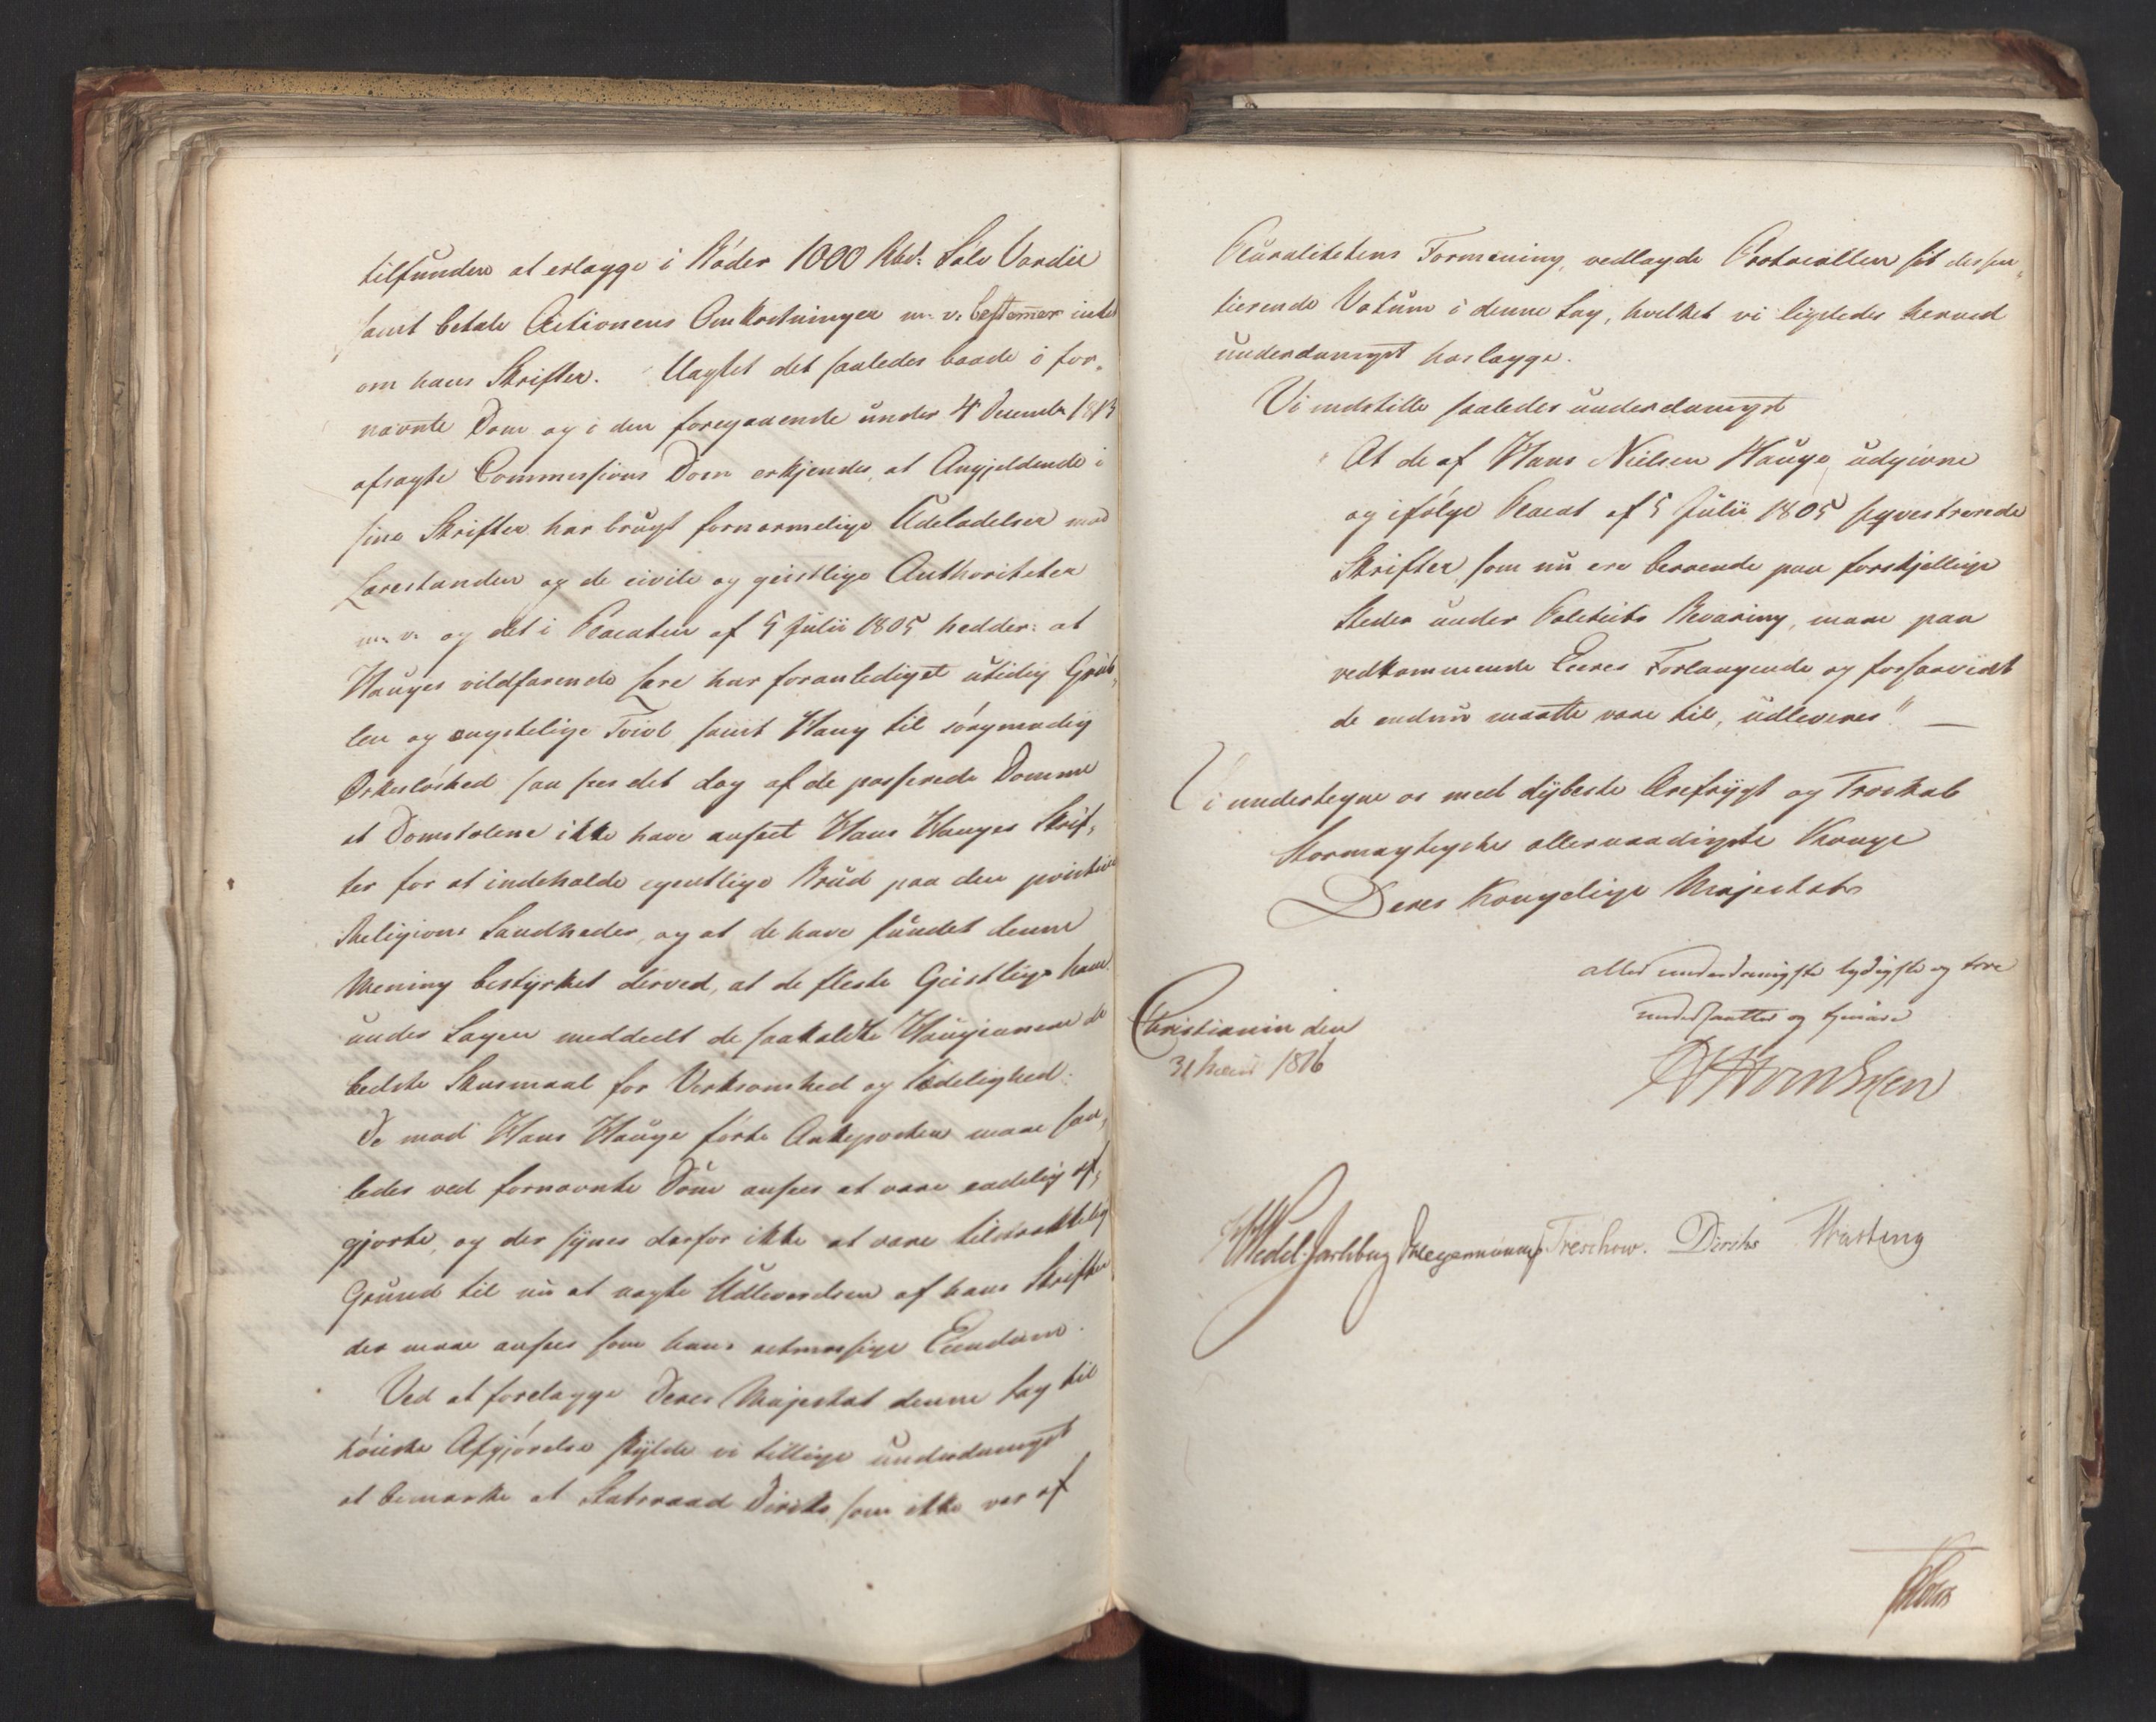 tilfunden at erlægge i Bøder 1000 Rbd: Sølv Værdie
samt betale Actionens Omkostninger m. v. bestemer intet
om hans Skrifter. Uagtet det saaledes baade i for„
nævnte Dom og i den foregaaende under 4 December 1813
afsagte Commissions Dom erkjendes, at Angjeldende i
sine Skrifter har brugt fornærmelige Udeladelser mod
Lærestanden og de civile og geistlige Authoriteter
m. v. og det i Placaten af 5 Julii 1805 hedder: at
Hauges vildfarende Lære har foranlediget utidig Grüb„
len og ængstelige Tvivl samt Hang til sørgmodig
Ørkesløshed saa sees det dog af de passerede Domme
at Domstolene ikke have anseet Hans Hauges Skrif„
ter for at indeholde egentlige Brud paa den positive
Religions Sandheder, og at de have fundet denne
Mening bestyrket derved, at de fleste Geistlige have
under Sagen meddeelt de saakaldte Haugianere de
bedste Skusmaal for Virksomhed og Sædelighed.
De mod Hans Hauge førte Ankeposter maae saa„
ledes ved fornævnte Dom ansees at være endelig af„
gjorte, og der synes derfor ikke at være tilstrækkelig
Grund til nu at nægte Udleverelsen af hans Skrifter
der maae ansees som hans retmæssige Eiendom.
Ved at forelægge Deres Majestæt denne Sag til
høieste Afgjørelse skylde vi tillige underdanigst
at bemærke at Statsraad Diriks som ikke var af
Pluralitetens Formening, vedlagde Protocollen sit dissen„
tierende Votum i denne Sag, hvilket vi ligeledes herved
underdanigst hoslægge.
Vi indstille saaledes underdanigst
At de af Hans Nielsen Hauge udgivne
og ifølge Placat af 5 Julii 1805 seqvestrerede
Skrifter, som nu ere beroende paa forskjellige
Steder under Politiets Bevaring, maae paa
vedkommende Eieres Forlangende og forsaavidt
de endnu maatte være til, udleveres" —
Vi undertegne os med dybeste Ærefrygt og Troskab
Stormægtigste allernaadigste Konge
Deres Kongelige Majestæts
allerunderdanigste lydigste og troe
undersaatter og tjenere
Christiania den
31 1816
Wedel-Jarlsberg Treschow. Diriks Hæsting